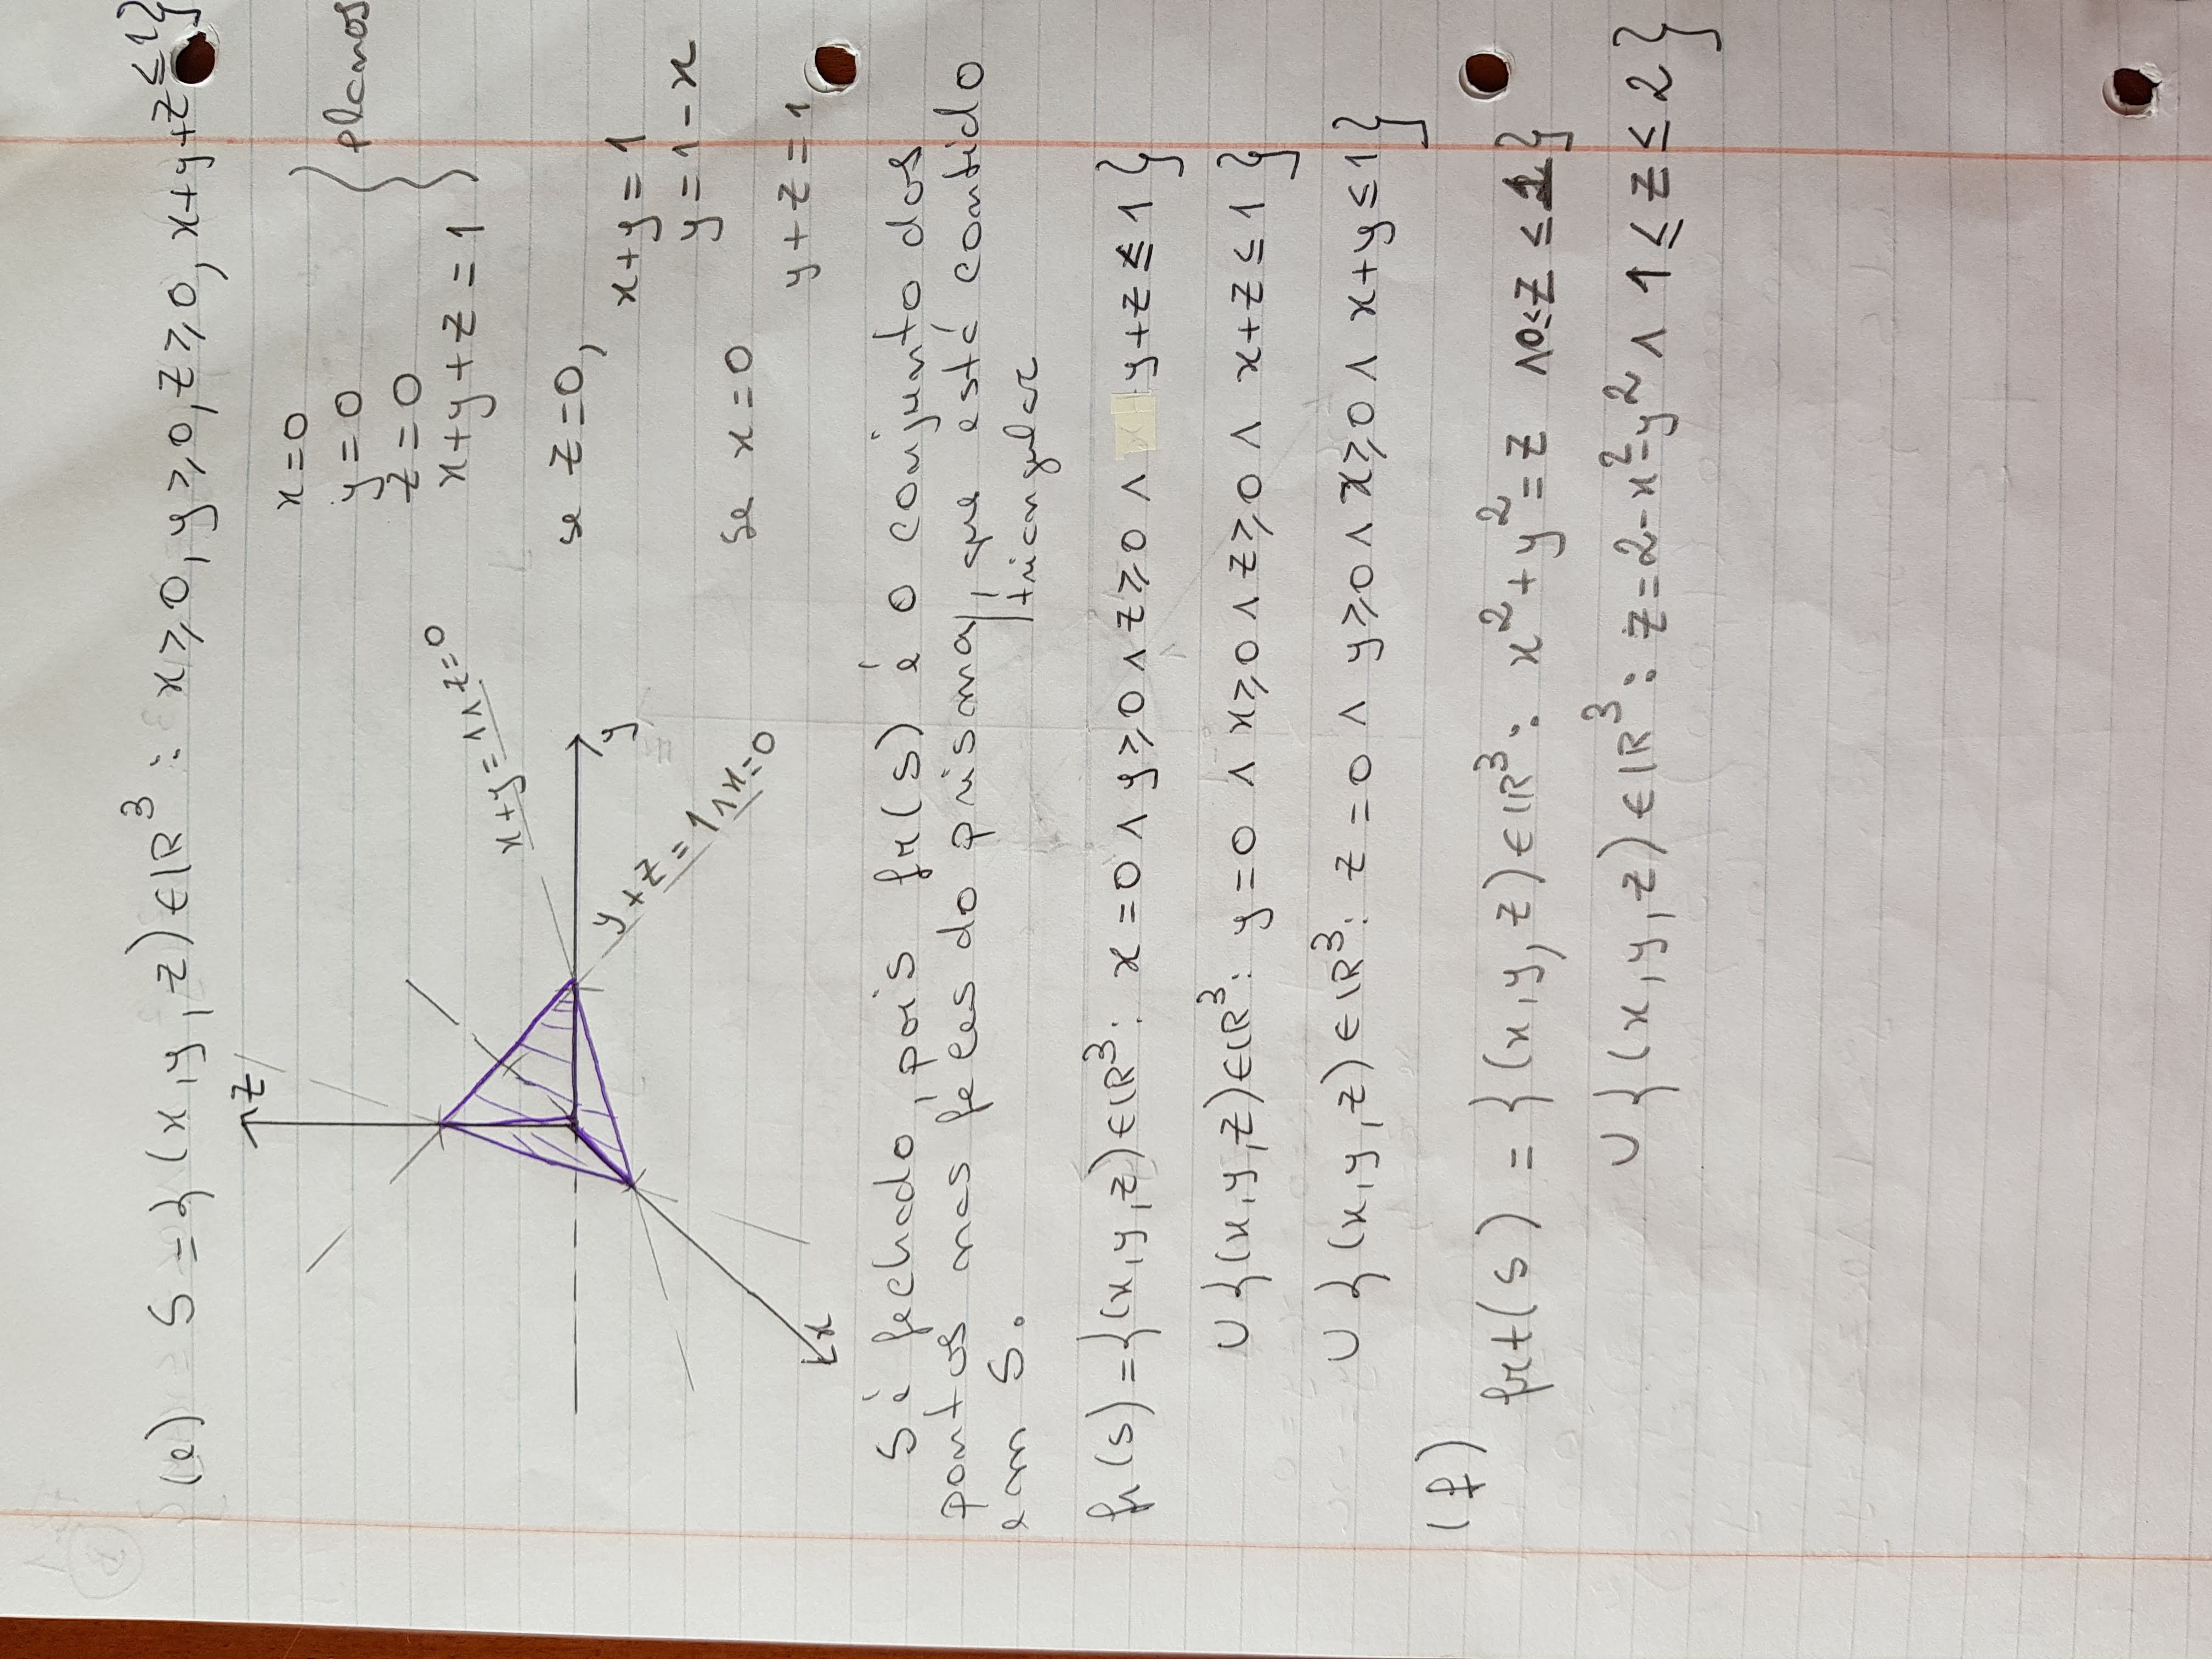 (e) S = {(x,y,z) ∈ ℝ³ : x ≥ 0, y ≥ 0, z ≥ 0, x+y+z ≤ 1}
z
x = 0
y = 0
z = 0
x+y+z = 1
planos
x+y = 1 ∧ z = 0
y
y+z = 1 ∧ x = 0
x
se z = 0,
x+y = 1
y = 1 - x
se x = 0
y+z = 1
S é fechado, pois fr(S) é o conjunto dos
pontos nas faces do prisma, que está contido
em S. triangular
fr(S) = {(x,y,z) ∈ ℝ³: x = 0 ∧ y ≥ 0 ∧ z ≥ 0 ∧ y+z ≤ 1}
∪ {(x,y,z) ∈ ℝ³: y = 0 ∧ x ≥ 0 ∧ z ≥ 0 ∧ x+z ≤ 1}
∪ {(x,y,z) ∈ ℝ³: z = 0 ∧ y ≥ 0 ∧ x ≥ 0 ∧ x+y ≤ 1}
(f)
frt(S) = {(x,y,z) ∈ ℝ³: x²+y² = z ∧ 0 ≤ z ≤ 1}
∪ {(x,y,z) ∈ ℝ³: z = 2-x²-y² ∧ 1 ≤ z ≤ 2}